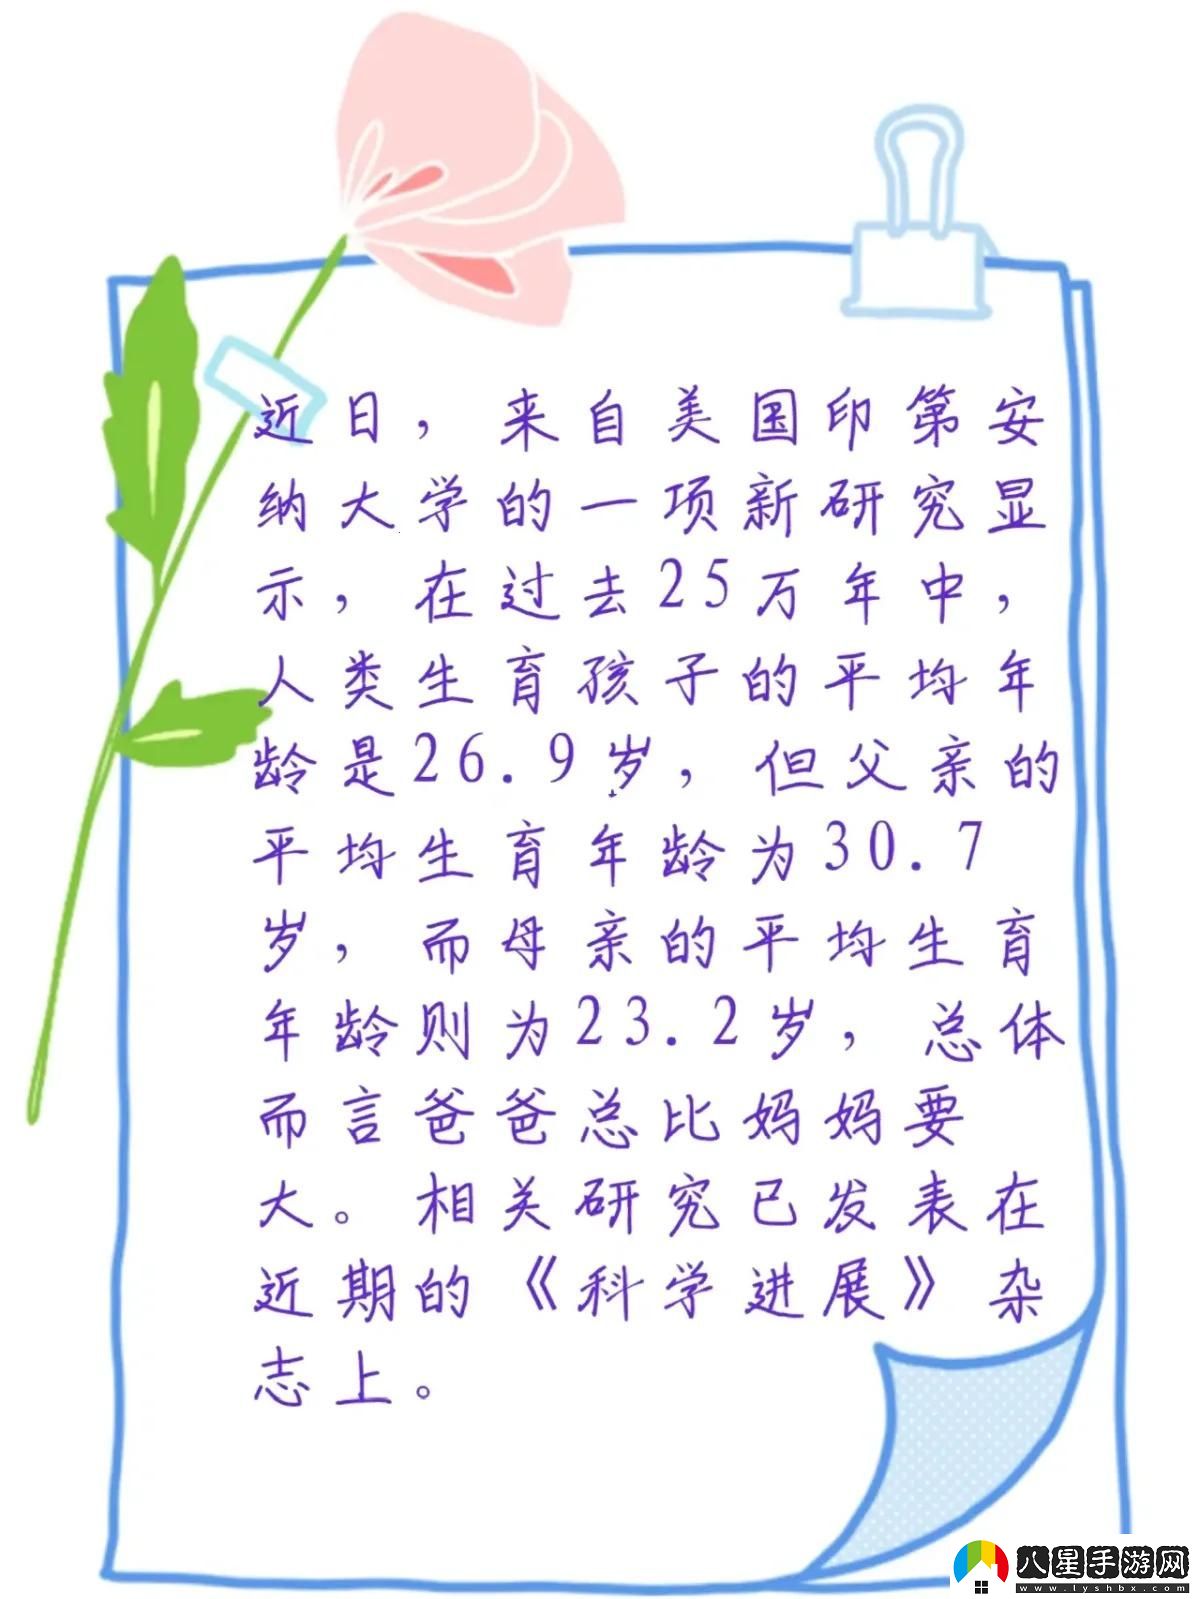 近日，来自美国印第安
纳大学的一项新研究显
示，在过去25万年中，
人类生育孩子的平均年
龄是26.9岁，但父亲的
平均生育年龄为30.7
岁，而母亲的平均生育
年龄则为23.2岁，总体
而言爸爸总比妈妈要
大。相关研究已发表在
近期的《科学进展》杂
志上。
八星手游网
www.lyshbx.com